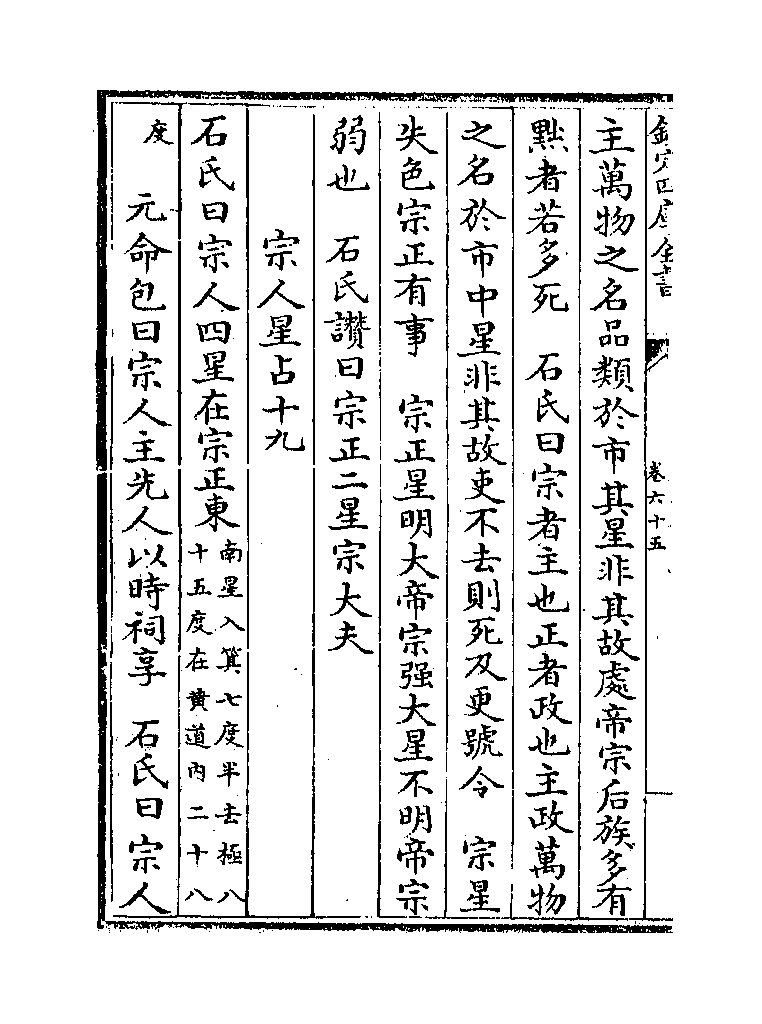 欽定四庫全書
卷六十五
主萬物之名品類於市其星非其故處帝宗后族多有
黜者若多死　石氏曰宗者主也正者政也主政萬物
之名於市中星非其故吏不去則死及更號令　宗星
失色宗正有事　宗正星明大帝宗强大星不明帝宗
弱也　石氏讃曰宗正二星宗大夫
宗人星占十九
石氏曰宗人四星在宗正東南星入箕七度半去極八
十五度在黄道内二十八
度　元命包曰宗人主先人以時祠享　石氏曰宗人